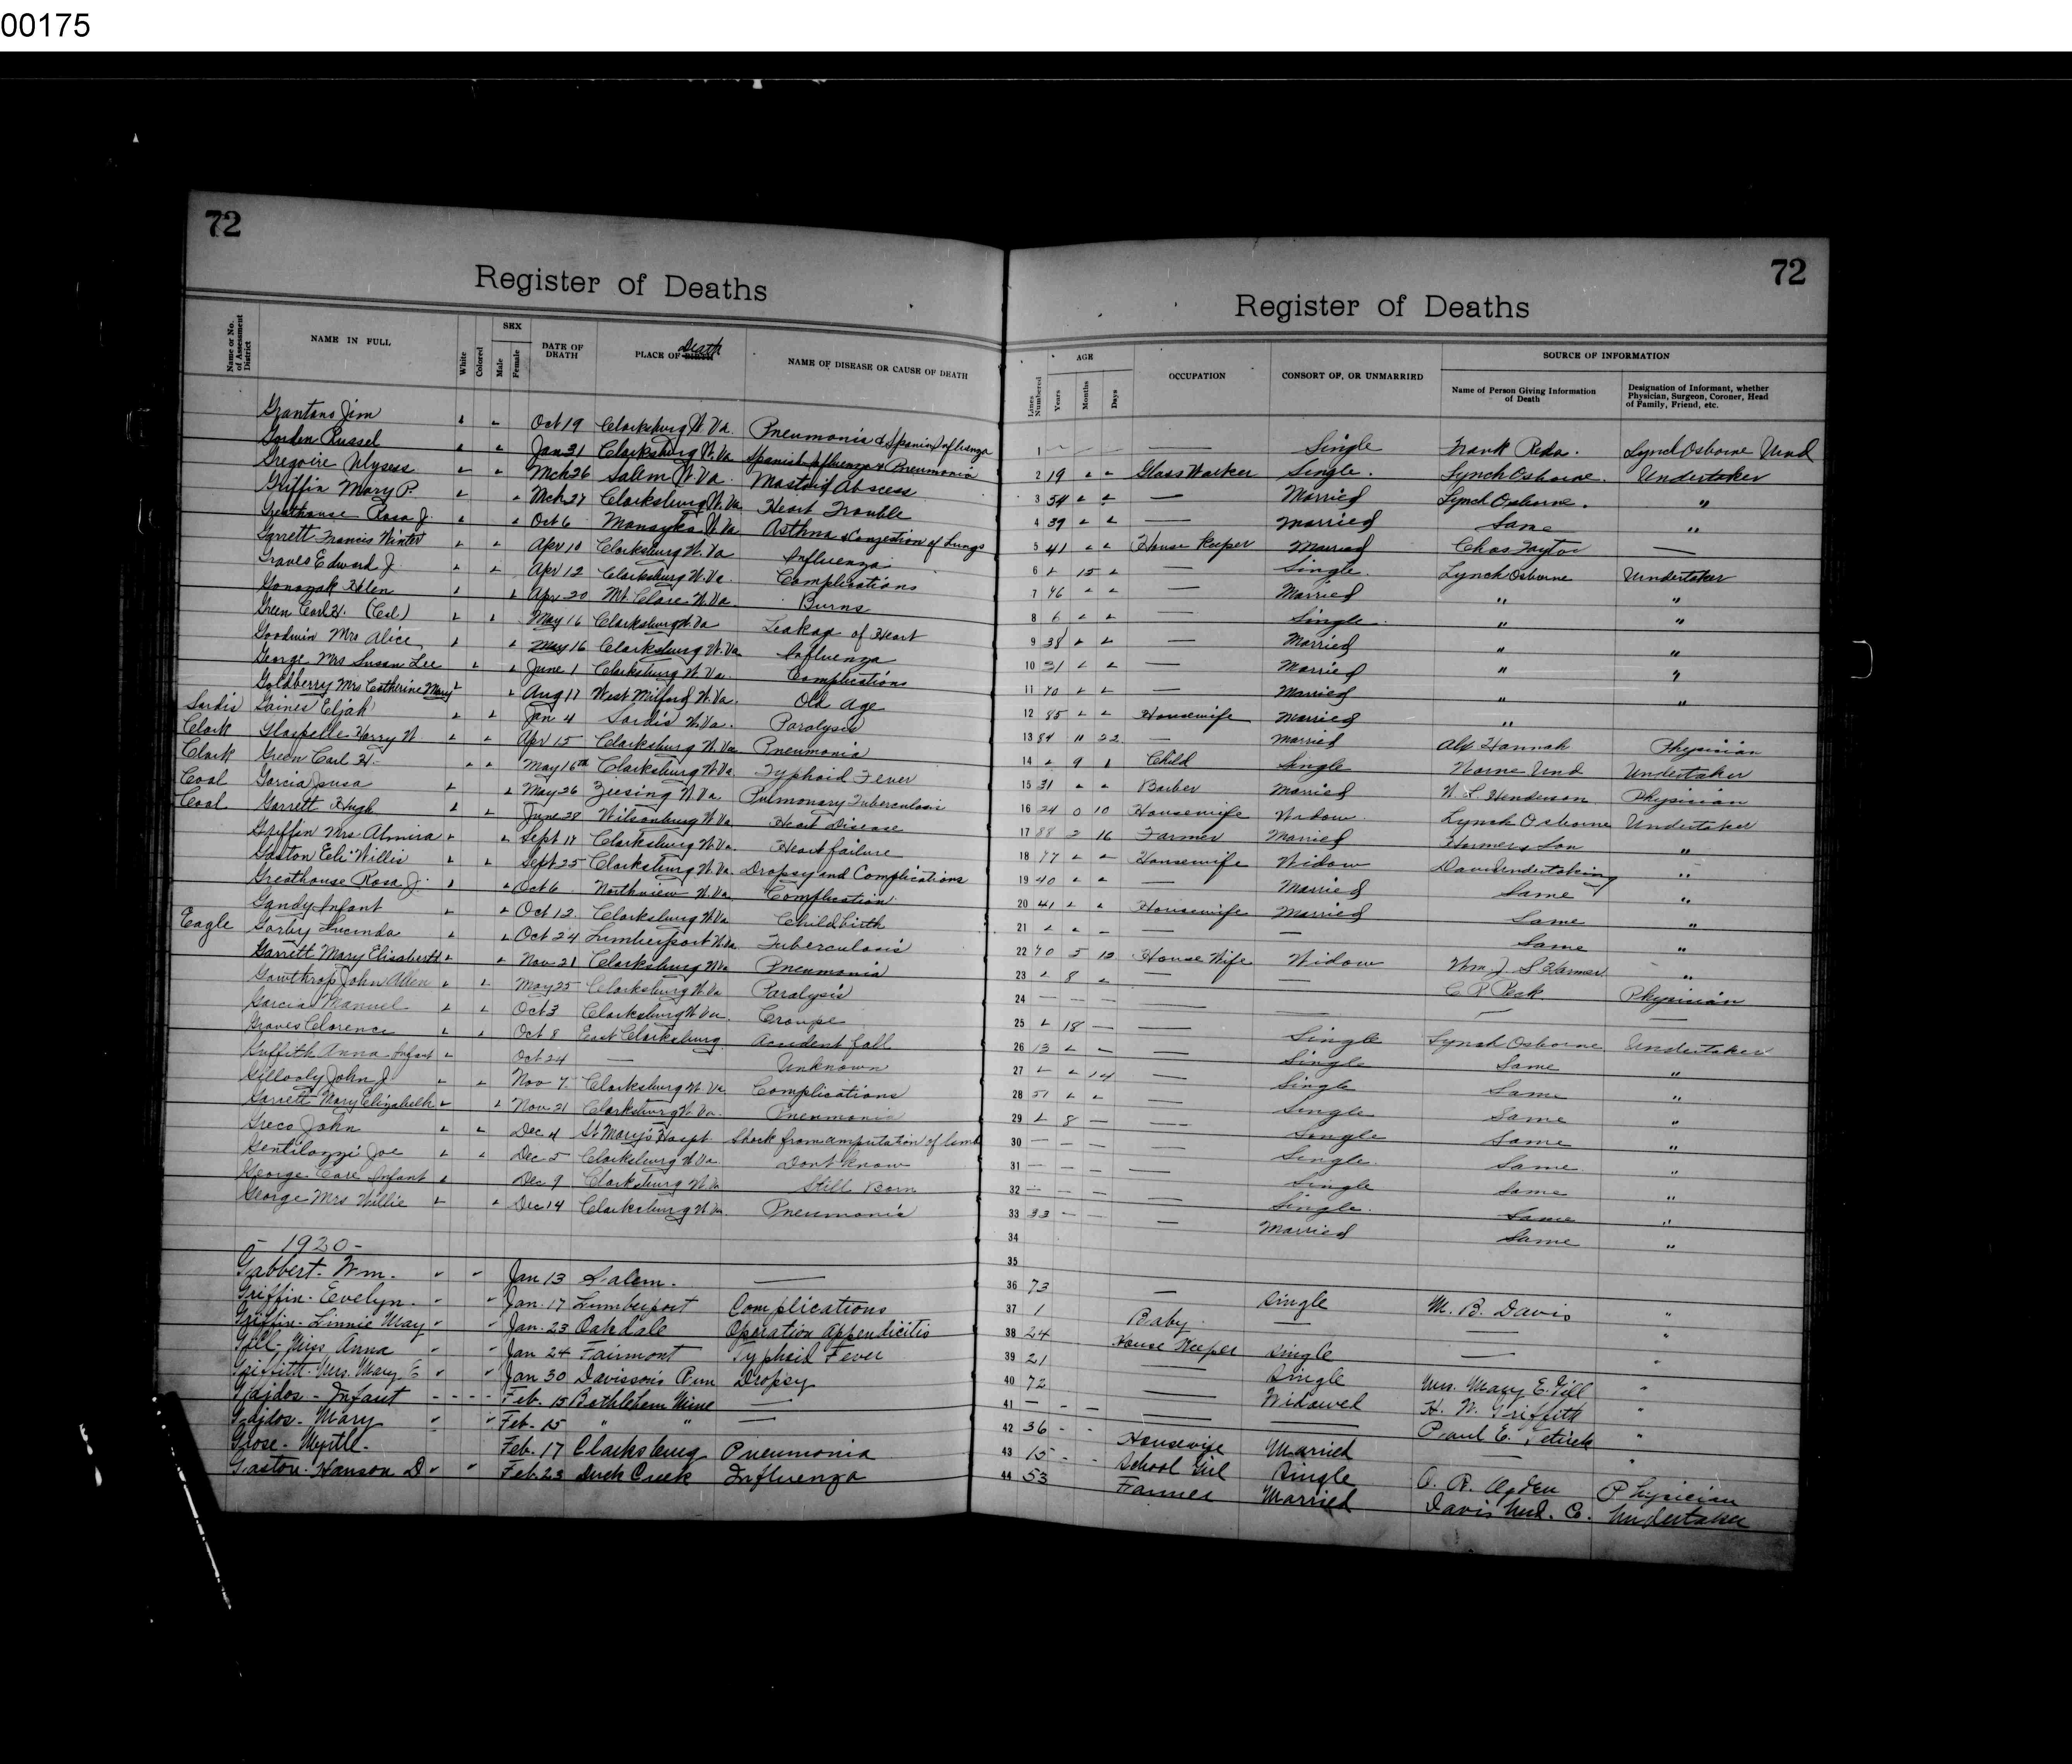 00175
72
Register of Deaths
Name or No. of Assessment District
NAME IN FULL
White
Colored
SEX
Male
Female
DATE OF DEATH
PLACE OF BIRTH Death
NAME OF DISEASE OR CAUSE OF DEATH
Grantano Jim Oct 19 Clarksburg W. Va. Pneumonia & Spanish Influenza
Gorden Russel Jan 21 Clarksburg W. Va Spanish Influenza & Pneumonia
Gregoire Ulysess Mch 26 Salem W. Va. Mastoid Abscess
Griffin Mary P. Mch 27 Clarksburg W. Va. Heart Trouble
Greathouse Rosa J. Oct 6 W. Va Asthma & Congestion of Lungs
Garrett Francis Winter Apr 10 Clarksburg W. Va Influenza
Graves Edward J. Apr 12 Clarksburg W. Va. Complications
Helen Apr 20 Mt. Clare W. Va. Burns
Green Carl H. (Col.) May 16 Clarksburg W. Va Leakage of Heart
Goodwin Mrs Alice May 16 Clarksburg W. Va Influenza
George Mrs Susan Lee June 1 Clarksburg W. Va. Complications
Goldberry Mrs Catherine Mary Aug 17 West Milford W. Va. Old Age
Sardis Gaines Elijah Jan 4 Sardis W. Va. Paralysis
Clark Glaspelle Harry W. Apr 15 Clarksburg W. Va Pneumonia
Clark Green Carl H. May 16th Clarksburg W. Va. Typhoid Fever
Coal Garcia Jusa May 26 Zeesing W. Va. Pulmonary Tuberculosis
Coal Garrett Hugh June 28 Wilsonburg W. Va Heart Disease
Griffin Mrs Almira Sept 17 Clarksburg W. Va. Heart failure
Gaston Eli Willis Sept 25 Clarksburg W. Va. Dropsy and Complications
Greathouse Rosa J. Oct 6 Northview W. Va. Complication
Gandy Infant Oct 12 Clarksburg W. Va Childbirth
Eagle Gorby Lucinda Oct 24 Lumberport W. Va. Tuberculosis
Garrett Mary Elisabeth Nov 21 Clarksburg W. Va Pneumonia
Gawthrop John Allen May 25 Clarksburg W. Va Paralysis
Garcia Manuel Oct 3 Clarksburg W. Va. Croupe
Graves Clarence Oct 8 East Clarksburg Accident fall
Griffith Anna Infant Oct 24 — Unknown
Gillooly John J Nov 7 Clarksburg W. Va Complications
Garrett Mary Elizabeth Nov 21 Clarksburg W. Va. Pneumonia
Greco John Dec 4 St Mary's Hospt. Shock from amputation of limb
Gentilozzi Joe Dec 5 Clarksburg W. Va Dont know
George Care Infant Dec 9 Clarksburg W. Va Still Born
George Mrs Willie Dec 14 Clarksburg W. Va. Pneumonia
- 1920 -
Gabbert - Wm. Jan 13 Salem. —
Griffin - Evelyn. Jan. 17 Lumberport Complications
Griffin - Linnie May Jan. 23 Oakdale Operation Appendicitis
Gill - Miss Anna Jan 24 Fairmont Typhoid Fever
Griffith - Mrs. Mary E Jan 30 Davisson's Run Dropsy
Gajdos - Infant - - - - Feb. 15 Bethlehem Mine —
Gajdos - Mary Feb. 15 " " —
Grose - Myrtle - Feb. 17 Clarksburg Pneumonia
Gaston - Hanson D Feb. 23 Duck Creek Influenza
72
Register of Deaths
Lines Numbered
AGE
Years
Months
Days
OCCUPATION
CONSORT OF, OR UNMARRIED
SOURCE OF INFORMATION
Name of Person Giving Information of Death
Designation of Informant, whether Physician, Surgeon, Coroner, Head of Family, Friend, etc.
1 — — Single Frank Reda. Lynch Osborne Und
2 19 Glass Worker Single. Lynch Osborne. Undertaker
3 54 — Married Lynch Osborne. "
4 39 — Married Same "
5 41 House Keeper Married Chas Taylor —
6 15 — Single. Lynch Osborne Undertaker
7 46 — Married " "
8 6 — Single. " "
9 38 — Married " "
10 31 — Married " "
11 70 — Married " "
12 85 Housewife Married "
13 84 11 22 — Married Alx Hannah Physician
14 9 1 Child Single Horne Und Undertaker
15 31 Barber Married Henderson Physician
16 24 0 10 Housewife Widow. Lynch Osborne Undertaker
17 88 2 16 Farmer Married Harmer & Son "
18 77 Housewife Widow Davis Undertaking "
19 40 — Married Same "
20 41 Housewife Married Same "
21 — — — Same "
22 70 5 12 House Wife Widow Wm J. S. Harmer "
23 8 — — C R Peck Physician
24 — — — — — — —
25 18 — — Single Lynch Osborne Undertaker
26 13 — — Single Same "
27 14 — Single Same "
28 51 — Single Same "
29 8 — — Single Same "
30 — — — — Single. Same "
31 — — — — Single Same "
32 — — — — Single. Same "
33 33 — — — Married Same "
34
35
36 73 — Single M. B. Davis "
37 1 Baby — — "
38 24 House Keeper Single — "
39 21 — Single Mrs. Mary E. Gill "
40 72 — Widowed H. W. Griffith "
41 — - - — — Paul E. "
42 36 - - Housewife Married — "
43 15 - - School Girl Single O. R. Ogden Physician
44 53 Farmer Married Davis Und. Co. Undertaker